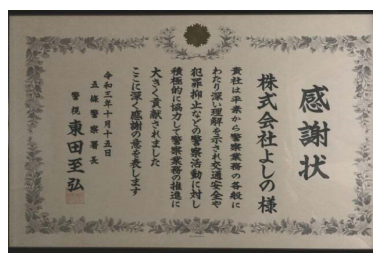 感謝状
株式会社よしの様
貴社は平素から警察業務の各般に
わたり深い理解を示され交通安全や
犯罪抑止などの警察活動に対し
積極的に協力して警察業務の推進に
大きく貢献されました
ここに深く感謝の意を表します
令和三年十月十五日
五條警察署長
警視 東田至弘